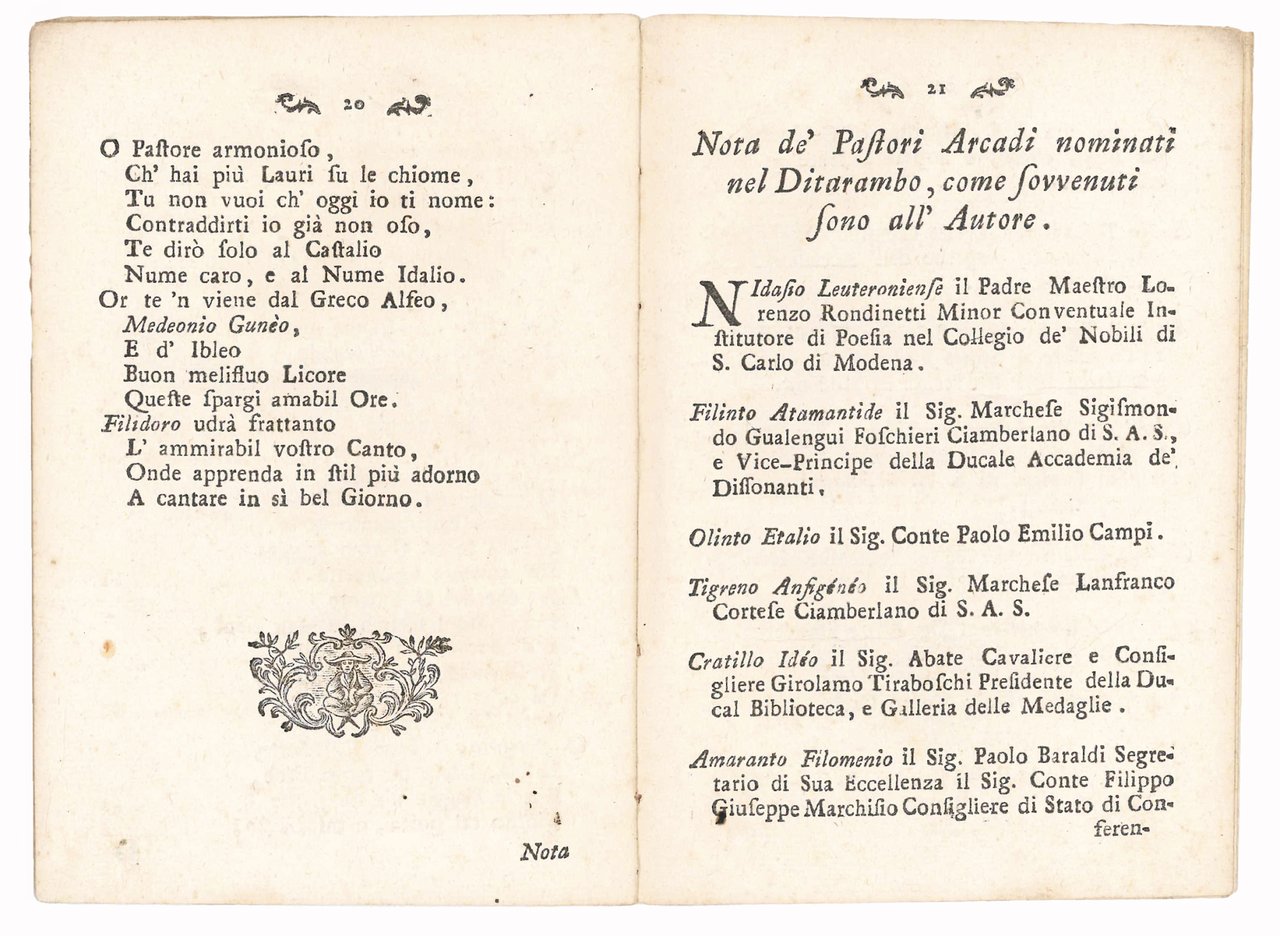 20
O Paſtore armonioſo,
Ch' hai più Lauri ſu le chiome,
Tu non vuoi ch' oggi io ti nome:
Contraddirti io già non oſo,
Te dirò ſolo al Caſtalio
Nume caro, e al Nume Idalio.
Or te 'n viene dal Greco Alfeo,
Medeonio Gunèo,
E d' Ibleo
Buon melifluo Licore
Queſte ſpargi amabil Ore.
Filidoro udrà frattanto
L' ammirabil voſtro Canto,
Onde apprenda in ſtil più adorno
A cantare in sì bel Giorno.
Nota
21
Nota de' Paſtori Arcadi nominati
nel Ditarambo, come ſovvenuti
ſono all' Autore.
NIdaſio Leuteronienſe il Padre Maeſtro Lo-
renzo Rondinetti Minor Conventuale In-
ſtitutore di Poeſia nel Collegio de' Nobili di
S. Carlo di Modena.
Filinto Atamantide il Sig. Marcheſe Sigiſmon-
do Gualengui Foſchieri Ciamberlano di S. A. S.,
e Vice-Principe della Ducale Accademia de'
Diſſonanti.
Olinto Etalio il Sig. Conte Paolo Emilio Campi.
Tigreno Anfigénéo il Sig. Marcheſe Lanfranco
Corteſe Ciamberlano di S. A. S.
Cratillo Idéo il Sig. Abate Cavaliere e Conſi-
gliere Girolamo Tiraboſchi Preſidente della Du-
cal Biblioteca, e Galleria delle Medaglie.
Amaranto Filomenio il Sig. Paolo Baraldi Segre-
tario di Sua Eccellenza il Sig. Conte Filippo
Giuſeppe Marchiſio Conſigliere di Stato di Con-
feren-